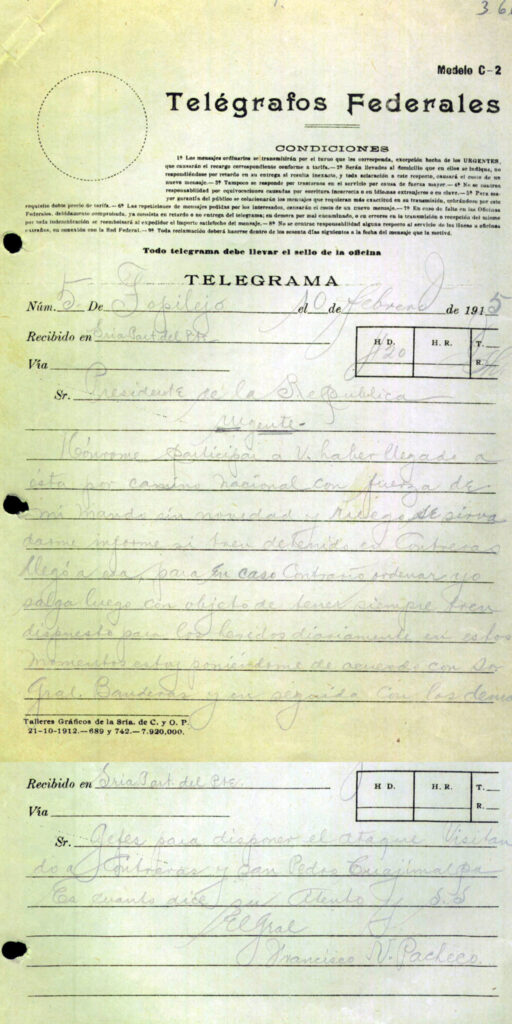 36
Modelo C-2
Telégrafos Federales
CONDICIONES
1ª Los mensajes ordinarios se transmitirán por el turno que les corresponda, excepción hecha de los URGENTES,
que causarán el recargo correspondiente conforme a tarifa.—2ª Serán llevados al domicilio que en ellos se indique, no
respondiéndose por retardo en su entrega si resulta inexacto, y toda aclaración a este respecto, causará el costo de un
nuevo mensaje.—3ª Tampoco se responde por trastornos en el servicio por causa de fuerza mayor.—4ª No se contrae
responsabilidad por equivocaciones causadas por escritura incorrecta o en idiomas extranjeros o en clave.—5ª Para ma-
yor garantía del público se colacionarán los mensajes que requieran más exactitud en su transmisión, cobrándose por este
requisito doble precio de tarifa.—6ª Las repeticiones de mensajes pedidas por los interesados, causarán el costo de un nuevo mensaje.—7ª En caso de falta en las Oficinas
Federales, debidamente comprobada, ya consista en retardo o no entrega del telegrama; en demora por mal encaminado, o en errores en la transmisión o recepción del mismo
por toda indemnización se reembolsará al expedidor el importe satisfecho del mensaje.—8ª No se contrae responsabilidad alguna respecto al servicio de las líneas u oficinas
extrañas, en conexión con la Red Federal.—9ª Toda reclamación deberá hacerse dentro de los sesenta días siguientes a la fecha del mensaje que la motiva.
Todo telegrama debe llevar el sello de la oficina
TELEGRAMA
Núm. 5. De Topilejo el 10 de febrero de 1915
Recibido en Sria Part. del Pte. H D. H. R. T.
Vía H20 R.
Sr. Presidente de la República
Urgente.-
Hónrome participar a V. haber llegado a
ésta por camino nacional con fuerza de
mi mando sin novedad y ruego se sirva
darme informe si tren detenido en Contreras
llegó a esa, para en caso contrario ordenar yo
salga luego con objeto de tener siempre tren
dispuesto para los heridos diariamente en estos
momentos estoy poniéndome de acuerdo con Sr.
Gral. Banderas y en seguida con los demas
Talleres Gráficos de la Sria. de C. y O. P.
21-10-1912.—689 y 742.—7.920,000.
Recibido en Sria Part. del Pte. H D. H. R. T.
Vía R.
Sr. Gefes para disponer el ataque Visitan
do a Contreras y San Pedro Cuajimalpa
Es cuanto dice su Atento y S. S
El Gral
Francisco V. Pacheco.